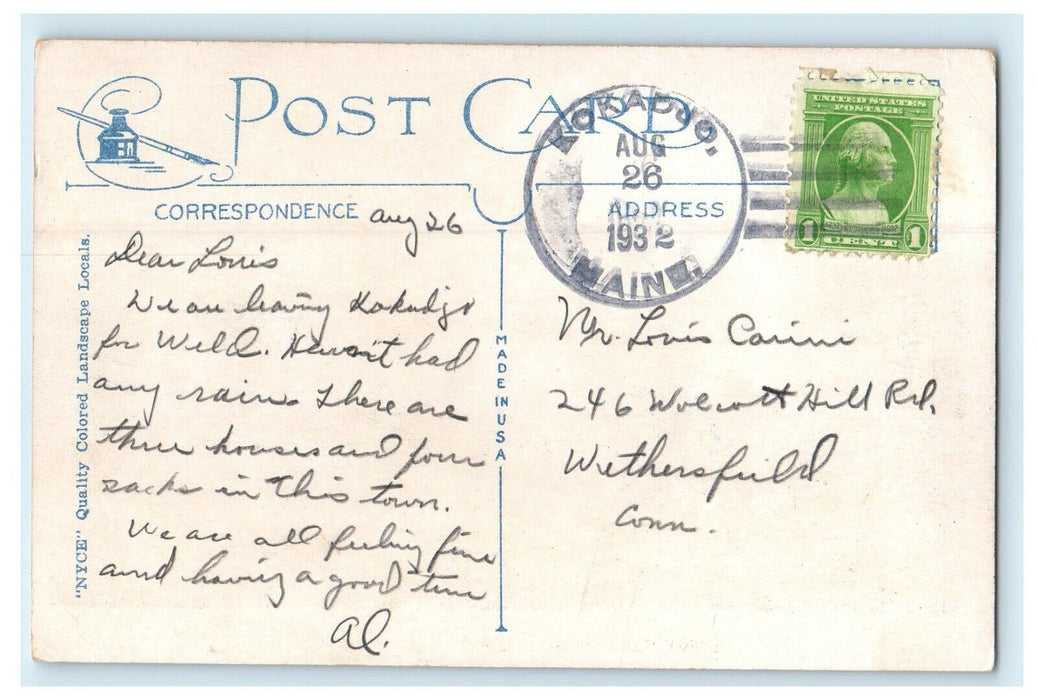 POST CARD
KOKADJO,
AUG
26
1932
MAINE.
UNITED STATES
POSTAGE
1 CENT 1
CORRESPONDENCE
ADDRESS
Aug 26
Dear Louis
We are leaving Kokadjo
for Weld. Haven't had
any rain. There are
three houses and four
in this town.
We are all feeling fine
and having a good time
Al.
"NYCE" Quality Colored Landscape Locals.
MADE IN USA
Mr. Louis Carini
246 Wolcott Hill Rd.
Wethersfield
Conn.